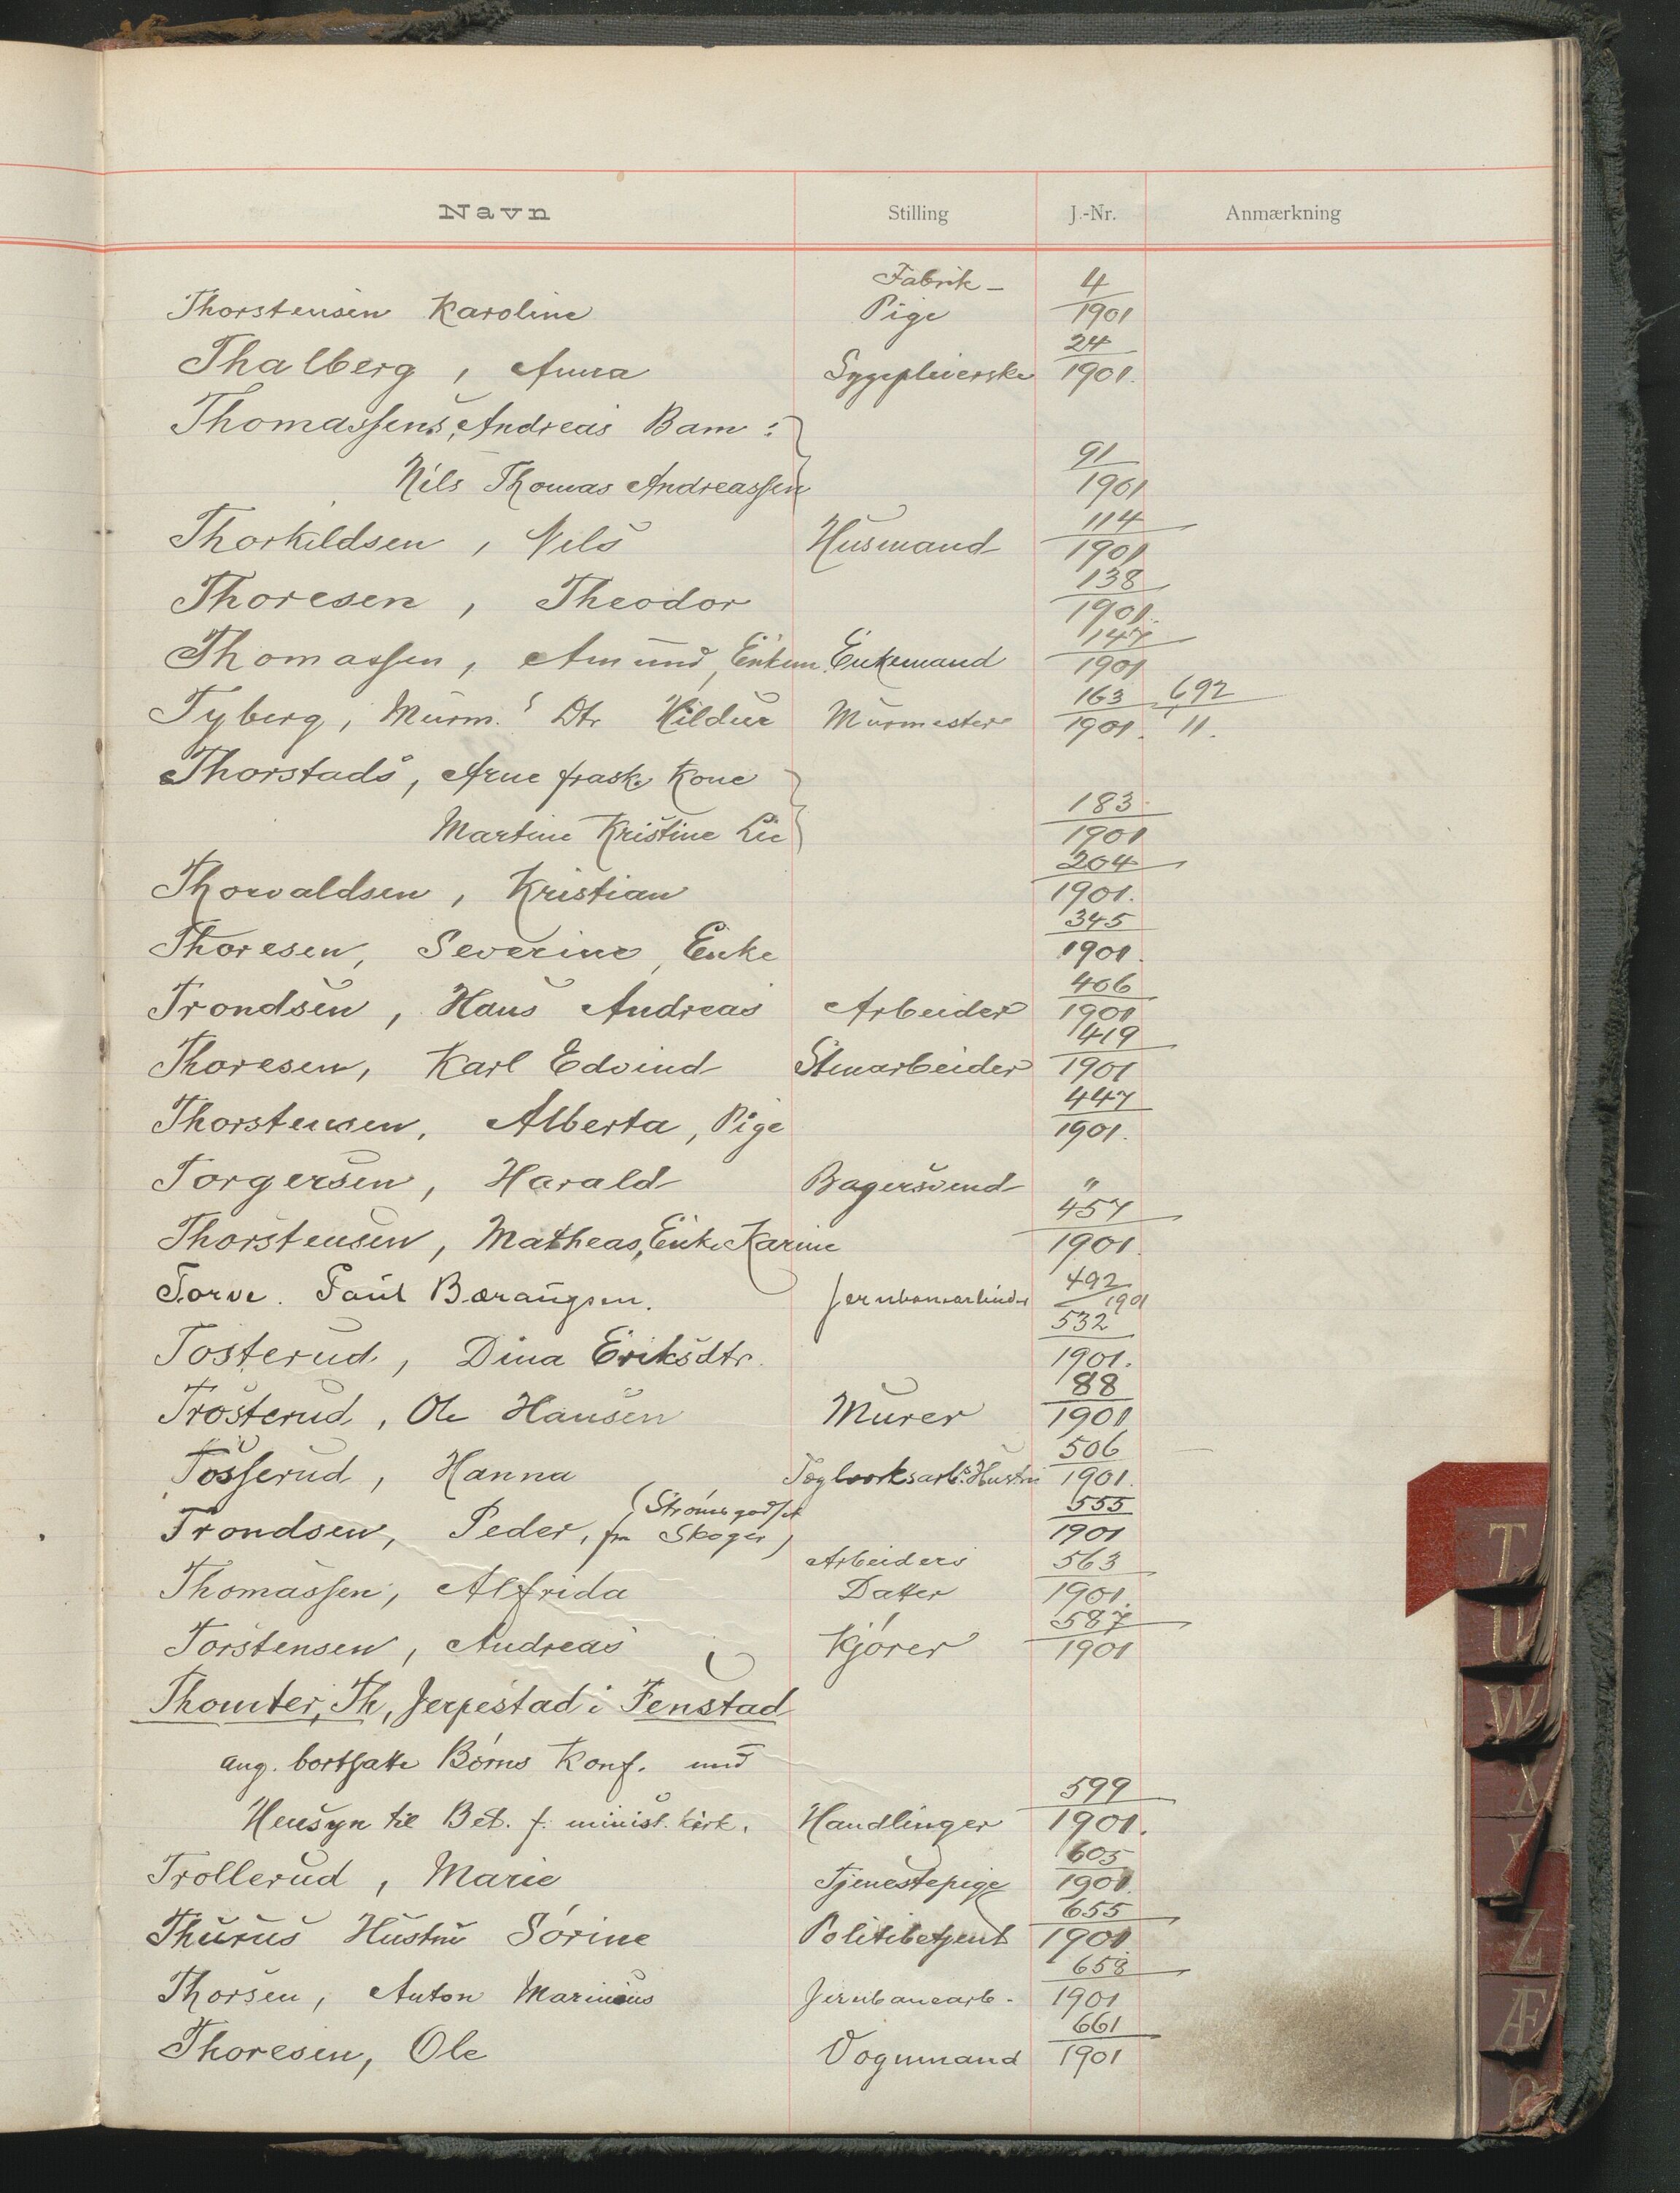 Navn Stilling J.-Nr. Anmærkning
Fabrik- 4
Thorstensen Karoline Pige 1901
24
Thalberg, Anna Sygepleierske 1901.
Thomassens, Andreas Barn:
91
Nils Thomas Andreassen 1901
114
Thorkildsen, Nils Husmand 1901
138
Thoresen, Theodor 1901.
147
Thomassen, Amund, Enkem. Enkemand 1901
163 692
Tyberg, Murm.s Dtr Hildur Murmester 1901. 11.
Thorstads, Arne frask. Kone
183
Martine Kristine Lie 1901
204
Thorvaldsen, Kristian 1901.
345
Thoresen, Severine, Enke 1901.
406
Trondsen, Hans Andreas Arbeider 1901
419
Thoresen, Karl Edvind Stenarbeider 1901
447
Thorstensen, Alberta, Pige 1901.
Torgersen, Harald Bagersvend "
457
Thorstensen, Matheas, Enke Karine 1901.
492
Torve. Paul Bæraugsen. Jernbanearbeider 1901
532
Tosterud, Dina Eriksdtr. 1901.
88
Trosterud, Ole Hansen Murer 1901
506
Tosserud, Hanna Teglverksarb.s Hustru 1901.
(Strømsgodset 555
Trondsen, Peder, fra Skoger) 1901
Arbeiders 563
Thomassen, Alfrida Datter 1901.
587
Torstensen, Andreas Kjører 1901
Thomter, Th, Jerpestad i Fenstad
ang. bortsatte Børns Konf. med
599
Hensyn til Bet. f. minist. kirk. Handlinger 1901.
605
Trollerud, Marie Tjenestepige 1901.
655
Thurus Hustru Sørine Politibetjent 1901.
658
Thorsen, Anton Marinius Jernbanearb. 1901
661
Thoresen, Ole Vognmand 1901
T
U
W
X
Y
Z
Æ